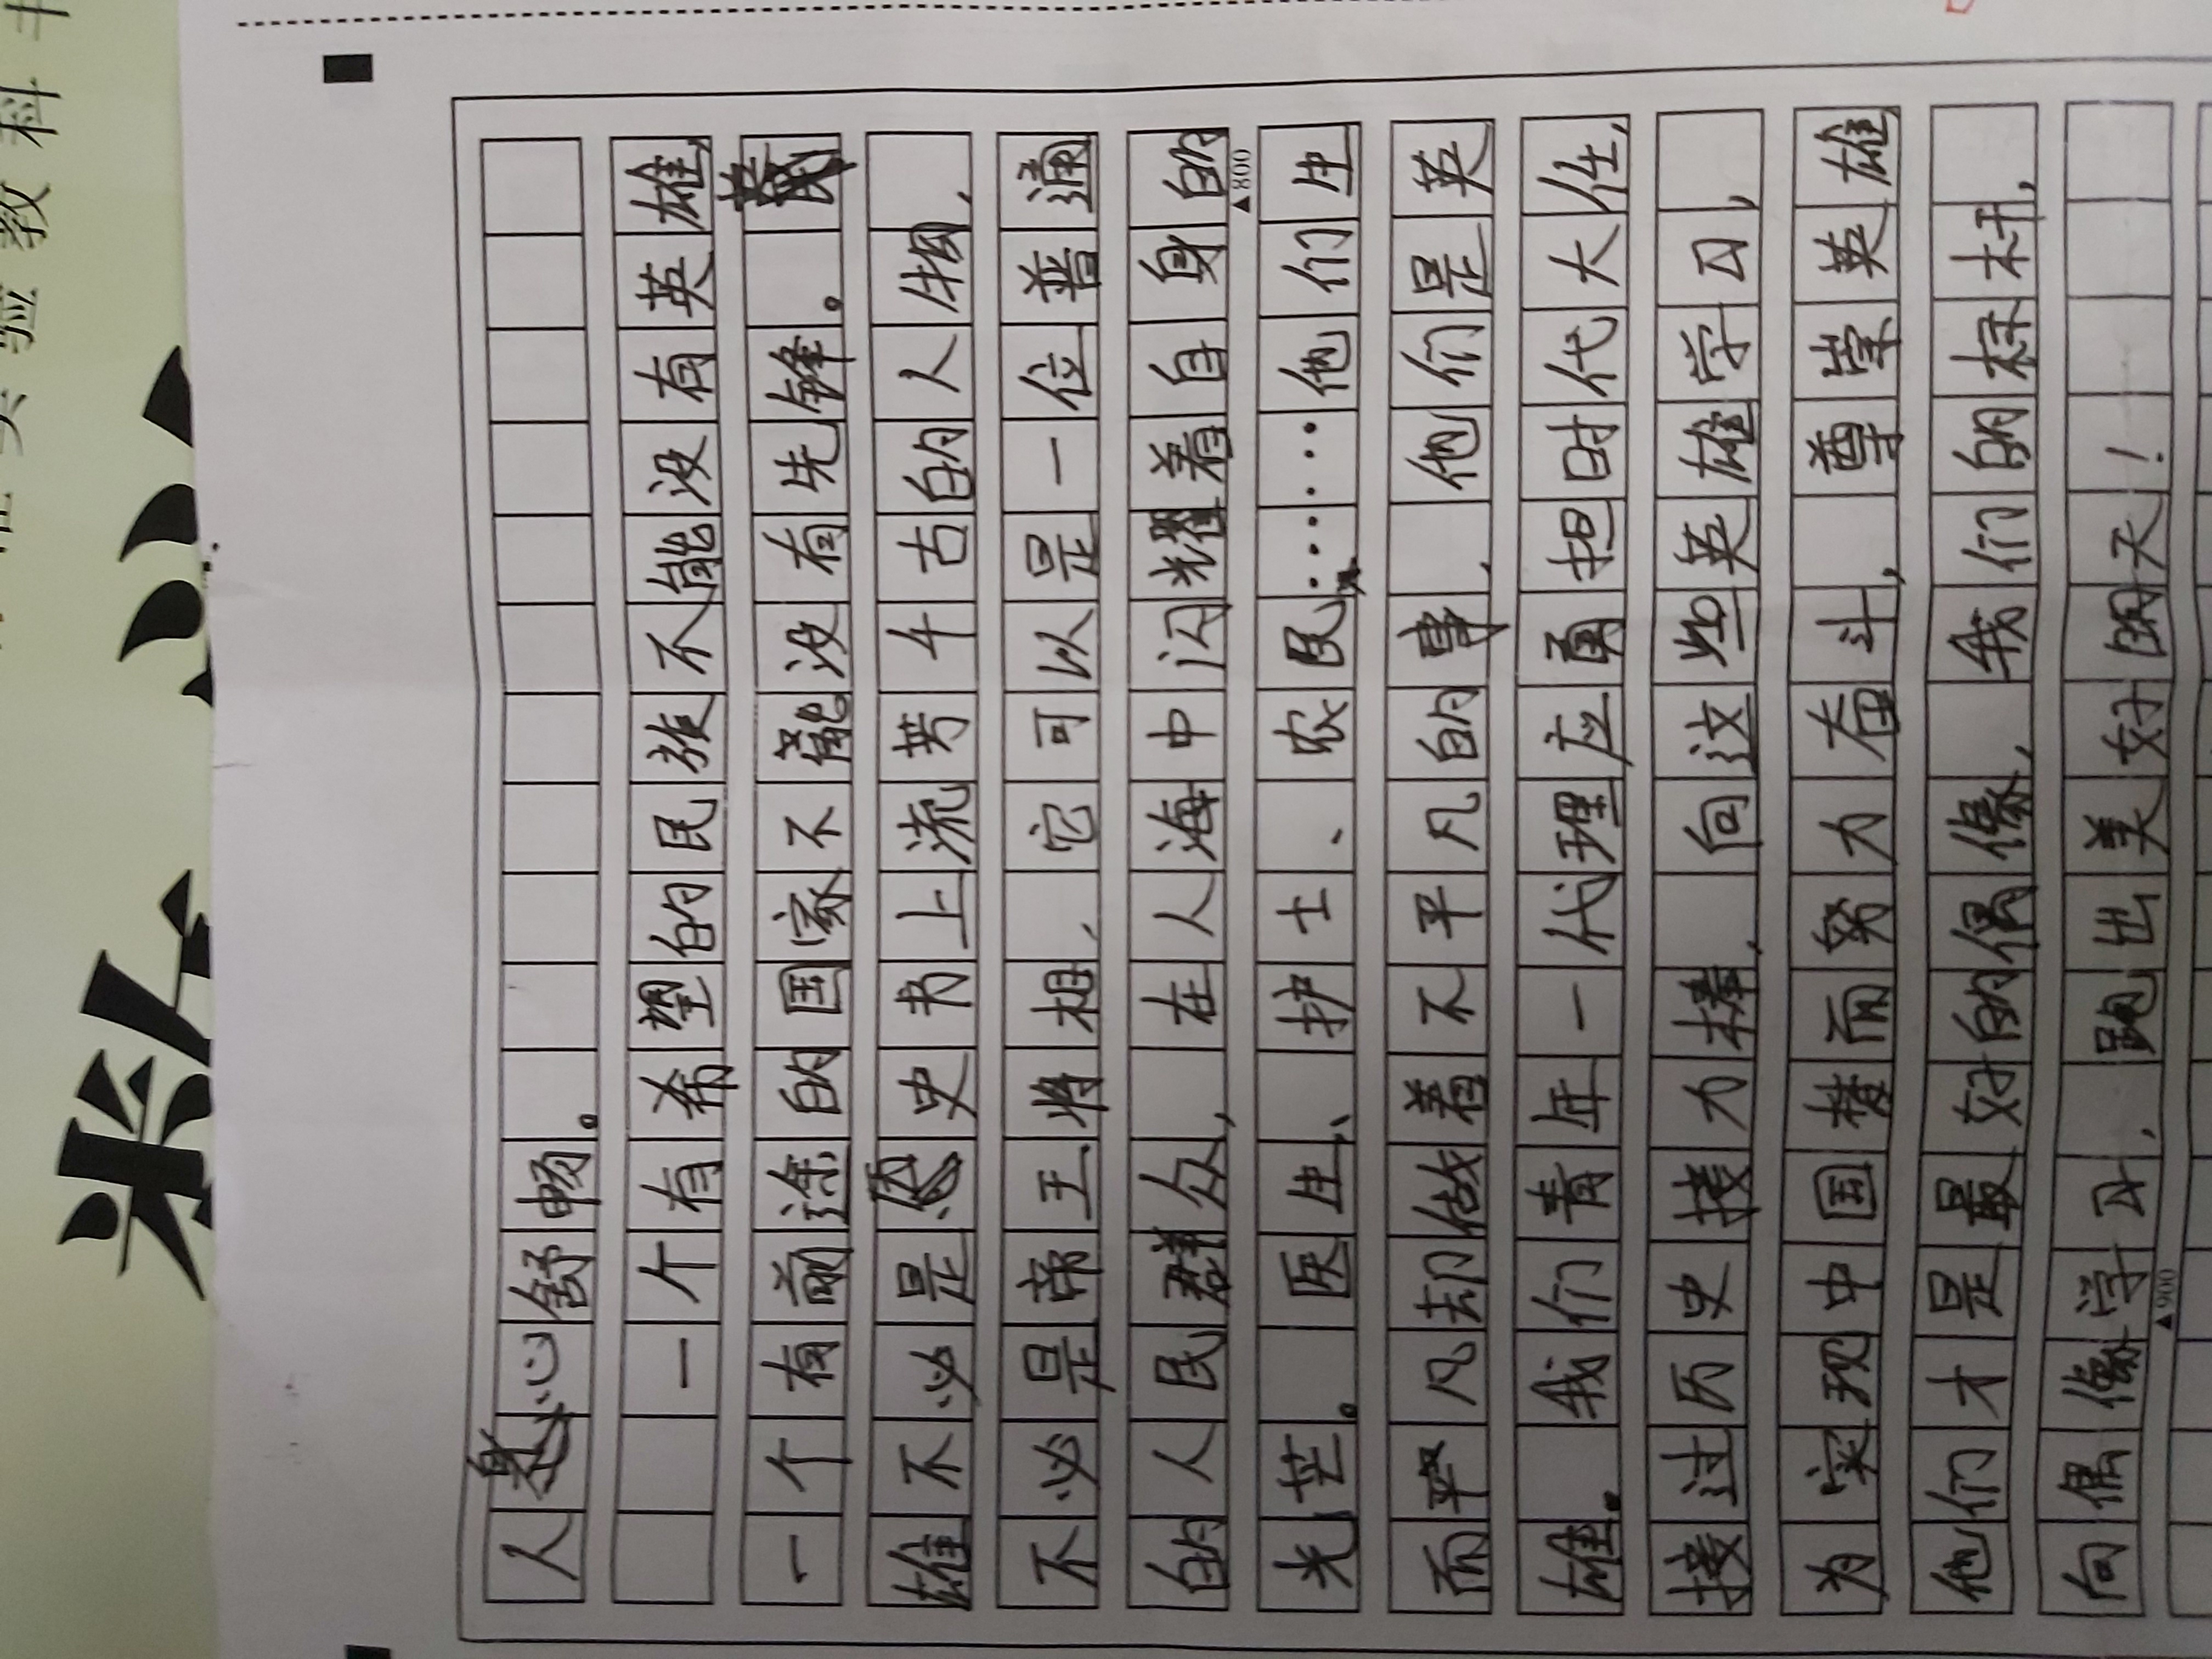 人心舒畅。
一个有希望的民族不能没有英雄,
一个有前途的国家不能没有先锋。英
雄不必是历史书上流芳千古的人物,
不必是帝王将相,它可以是一位普通
的人民群众,在人海中闪耀着自身的
▲800
光芒。医生、护士、农民……他们生
而平凡却做着不平凡的事,他们是英
雄。我们青年一代理应勇担时代大任,
接过历史接力棒,向这些英雄学习,
为实现中国梦而努力奋斗,尊崇英雄
他们才是最好的偶像,我们的标杆,
向偶像学习,跑出美好明天!
▲900
验教科书